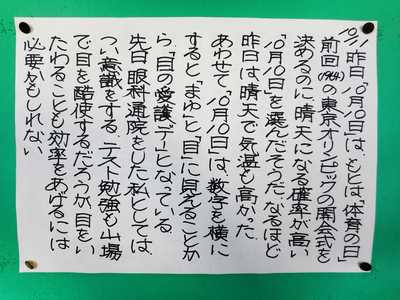 10/11 昨日「10月10日」は、もとは「体育の日」
前回(1964)の東京オリンピックの開会式を
決めるのに晴天になる確率が高い
「10月10日」を選んだそうだ。なるほど
昨日は晴天で気温も高かった。
あわせて「10月10日」は、数字を横に
すると「まゆ」と「目」に見えることか
ら、「目の愛護デー」となっている。
先日、眼科通院をした私としては、
つい意識をする。テスト勉強も山場
で目を酷使するだろうが、目をい
たわることも効率をあげるには
必要かもしれない